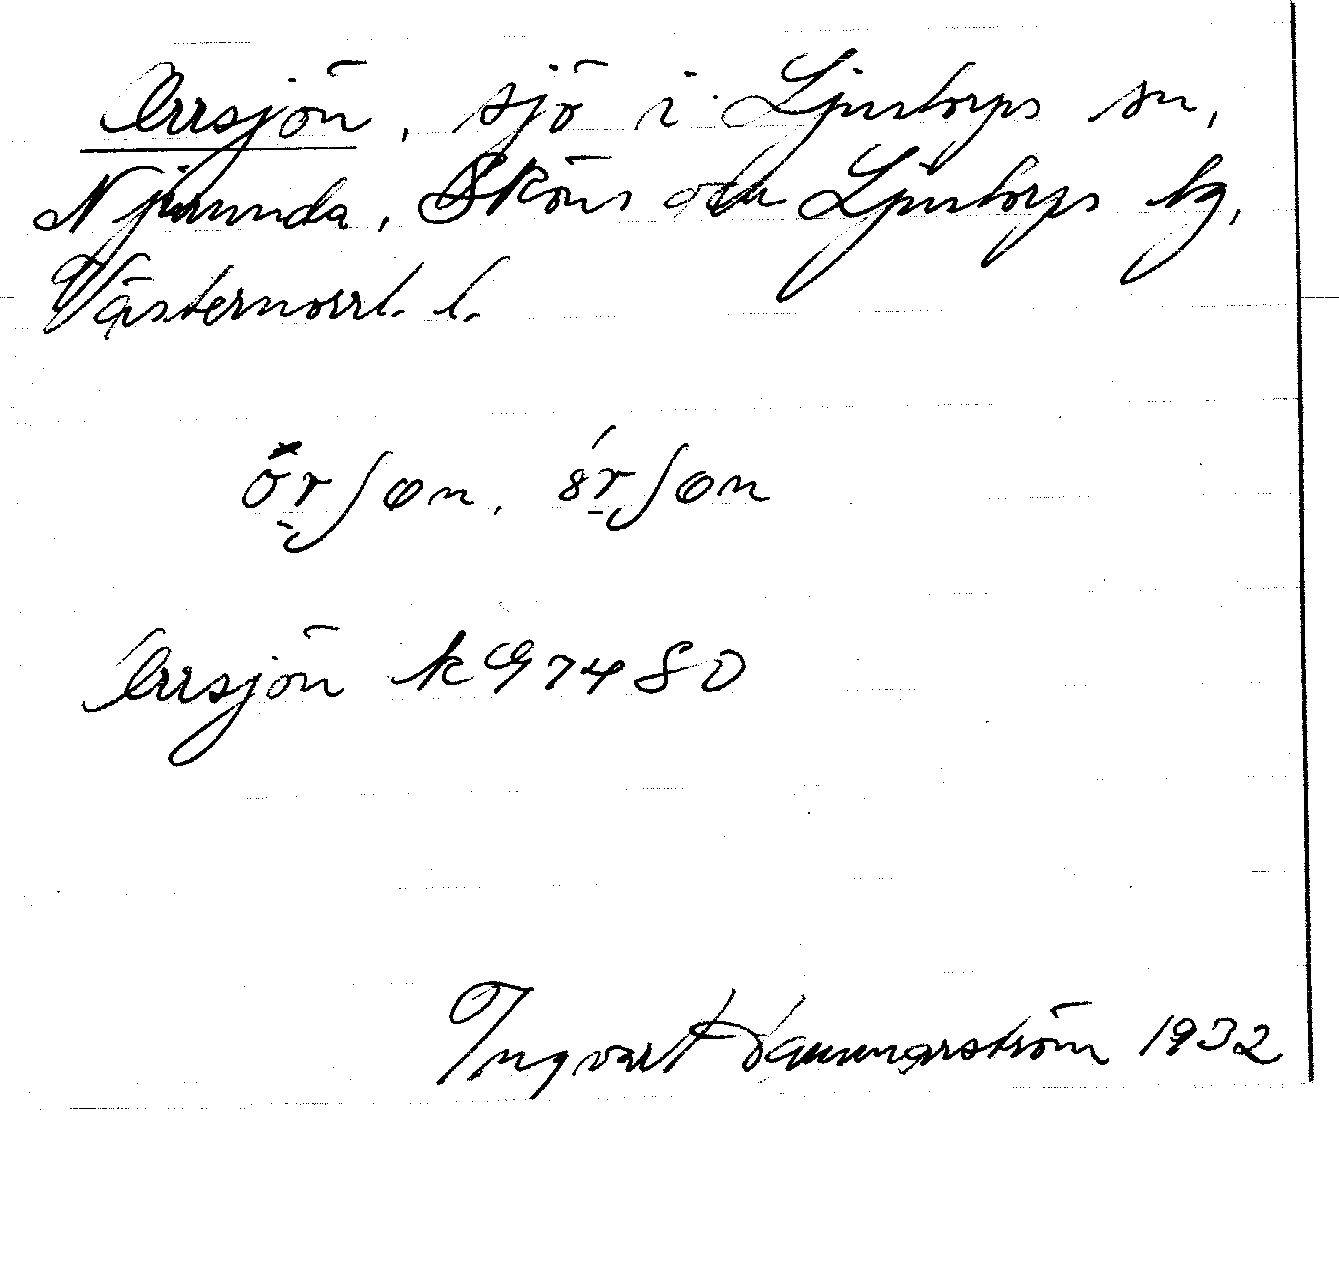 Orrsjön, sjö i Ljustorps sn,
Njurunda, Sköns och Ljustorps tg,
Västernorrl. l.
Orrsjön k 97480
Ingvart Hammarström 1932